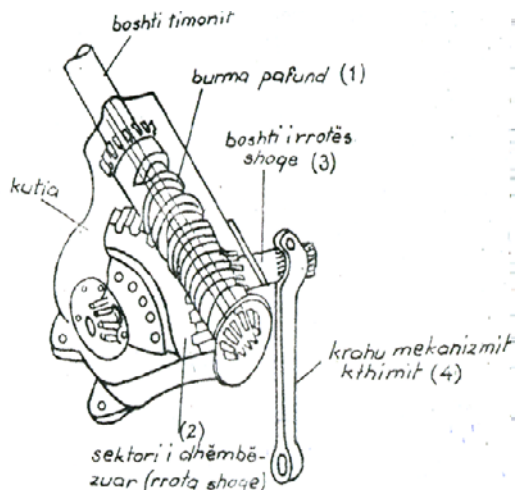 boshti timonit
burma pafund (1)
boshti i rrotës
shoqe (3)
kutia
krahu mekanizmit
kthimit (4)
(2)
sektori i dhëmbë-
zuar (rrota shoqe)